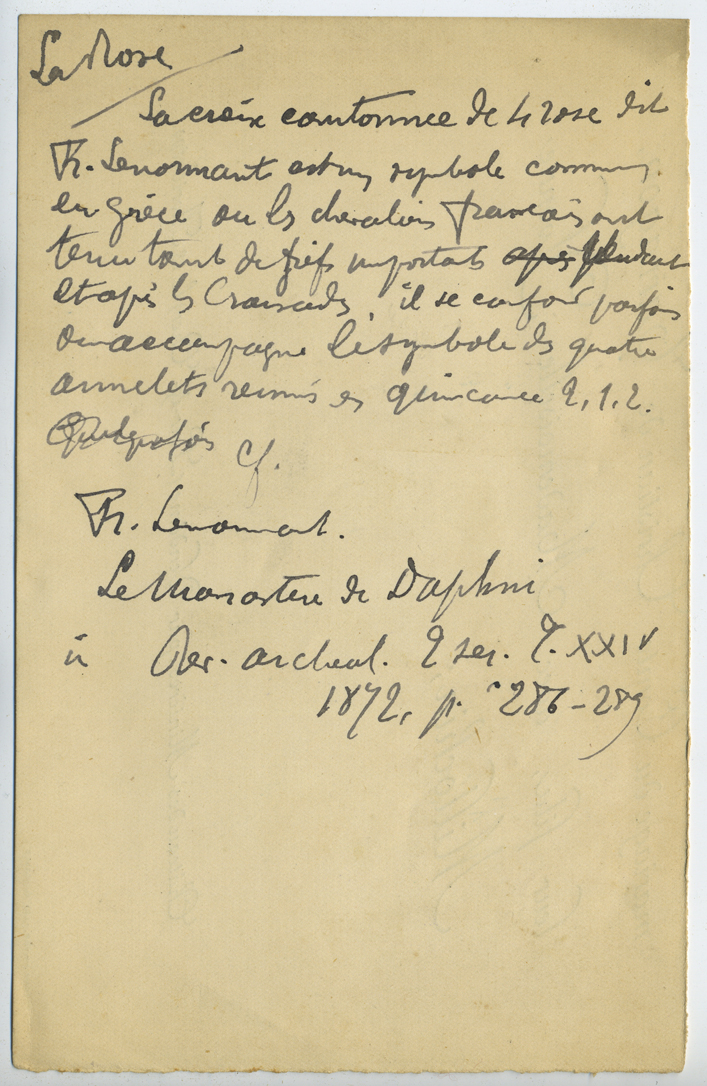 La Rose
La croix cantonnee de 4 rose dit
Fr. Lenormant est un symbole commun
en Grèce ou les chevaliers francais ont
tenu tant de fiefs importants après pendant
et après les Croisades, il se confond parfois
ou accompagne le symbole des quatre
annelets reunis en quinconce 2, 1, 2.
Quelquefois Cf.
Fr. Lenormant.
Le Monastere de Daphni
in Rev. archeol. 2 ser. T. XXIV
1872, p. 286-289